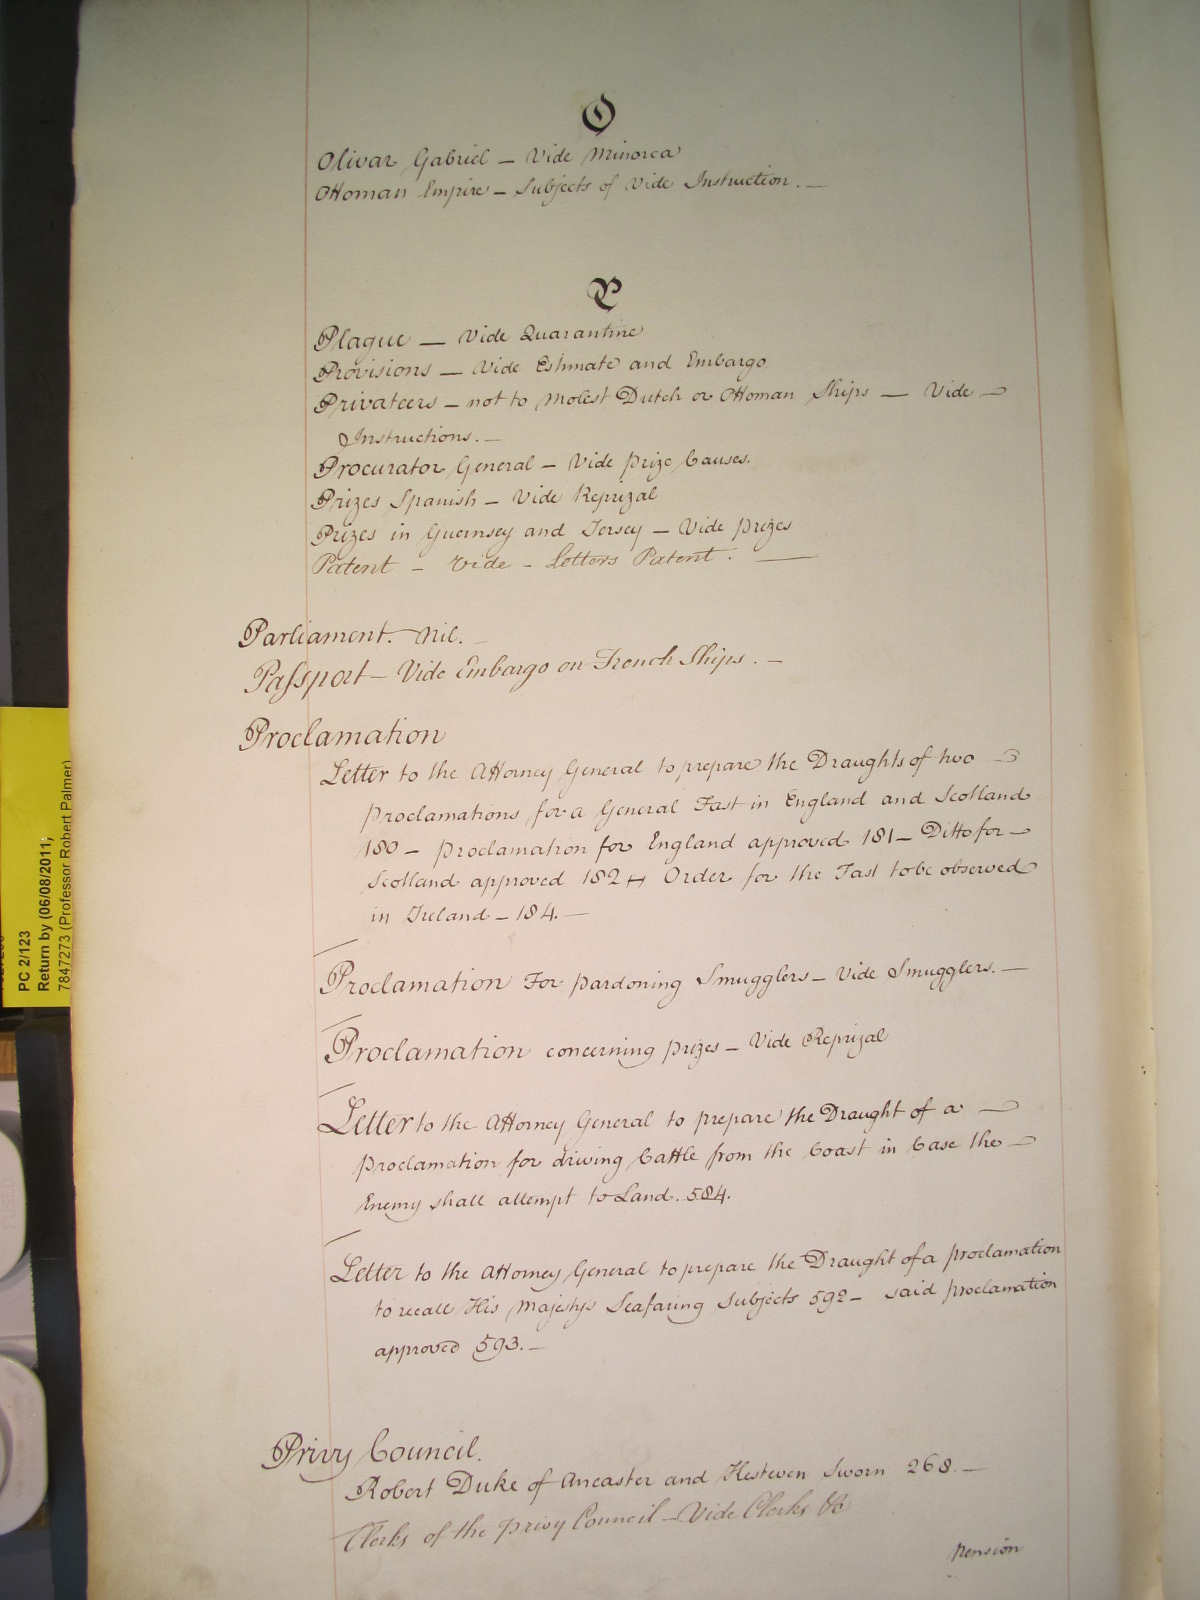 O
Olivar Gabriel – Vide Minorca
Ottoman Empire – Subjects of Vide Instruction. —
P
Plague — Vide Quarantine
Provisions — Vide Estimate and Embargo
Privateers – not to Molest Dutch or Ottoman Ships — Vide
Instructions. —
Procurator General – Vide Prize Causes.
Prizes Spanish – Vide Reprizal
Prizes in Guernsey and Jersey – Vide Prizes
Patent – Vide – Letters Patent. —
Parliament. Nil.
Passport – Vide Embargo on French Ships. —
Proclamation
Letter to the Attorney General to prepare the Draughts of two
Proclamations for a General Fast in England and Scotland
180 – Proclamation for England approved 181 – Ditto for –
Scotland approved 182 – Order for the Fast to be observed
in Ireland – 184. —
Proclamation For pardoning Smugglers – Vide Smugglers. —
Proclamation concerning Prizes – Vide Reprizal
Letter to the Attorney General to prepare the Draught of a —
Proclamation for driving Cattle from the Coast in Case the —
Enemy shall attempt to Land. 584.
Letter to the Attorney General to prepare the Draught of a Proclamation
to recall His Majesty's Seafaring Subjects 592 – said Proclamation
approved 593. —
Privy Council.
Robert Duke of Ancaster and Kesteven Sworn 268. —
Clerks of the Privy Council – Vide Clerks &c
Pension
PC 2/123
Return by (06/08/2011;
7847273 (Professor Robert Palmer)